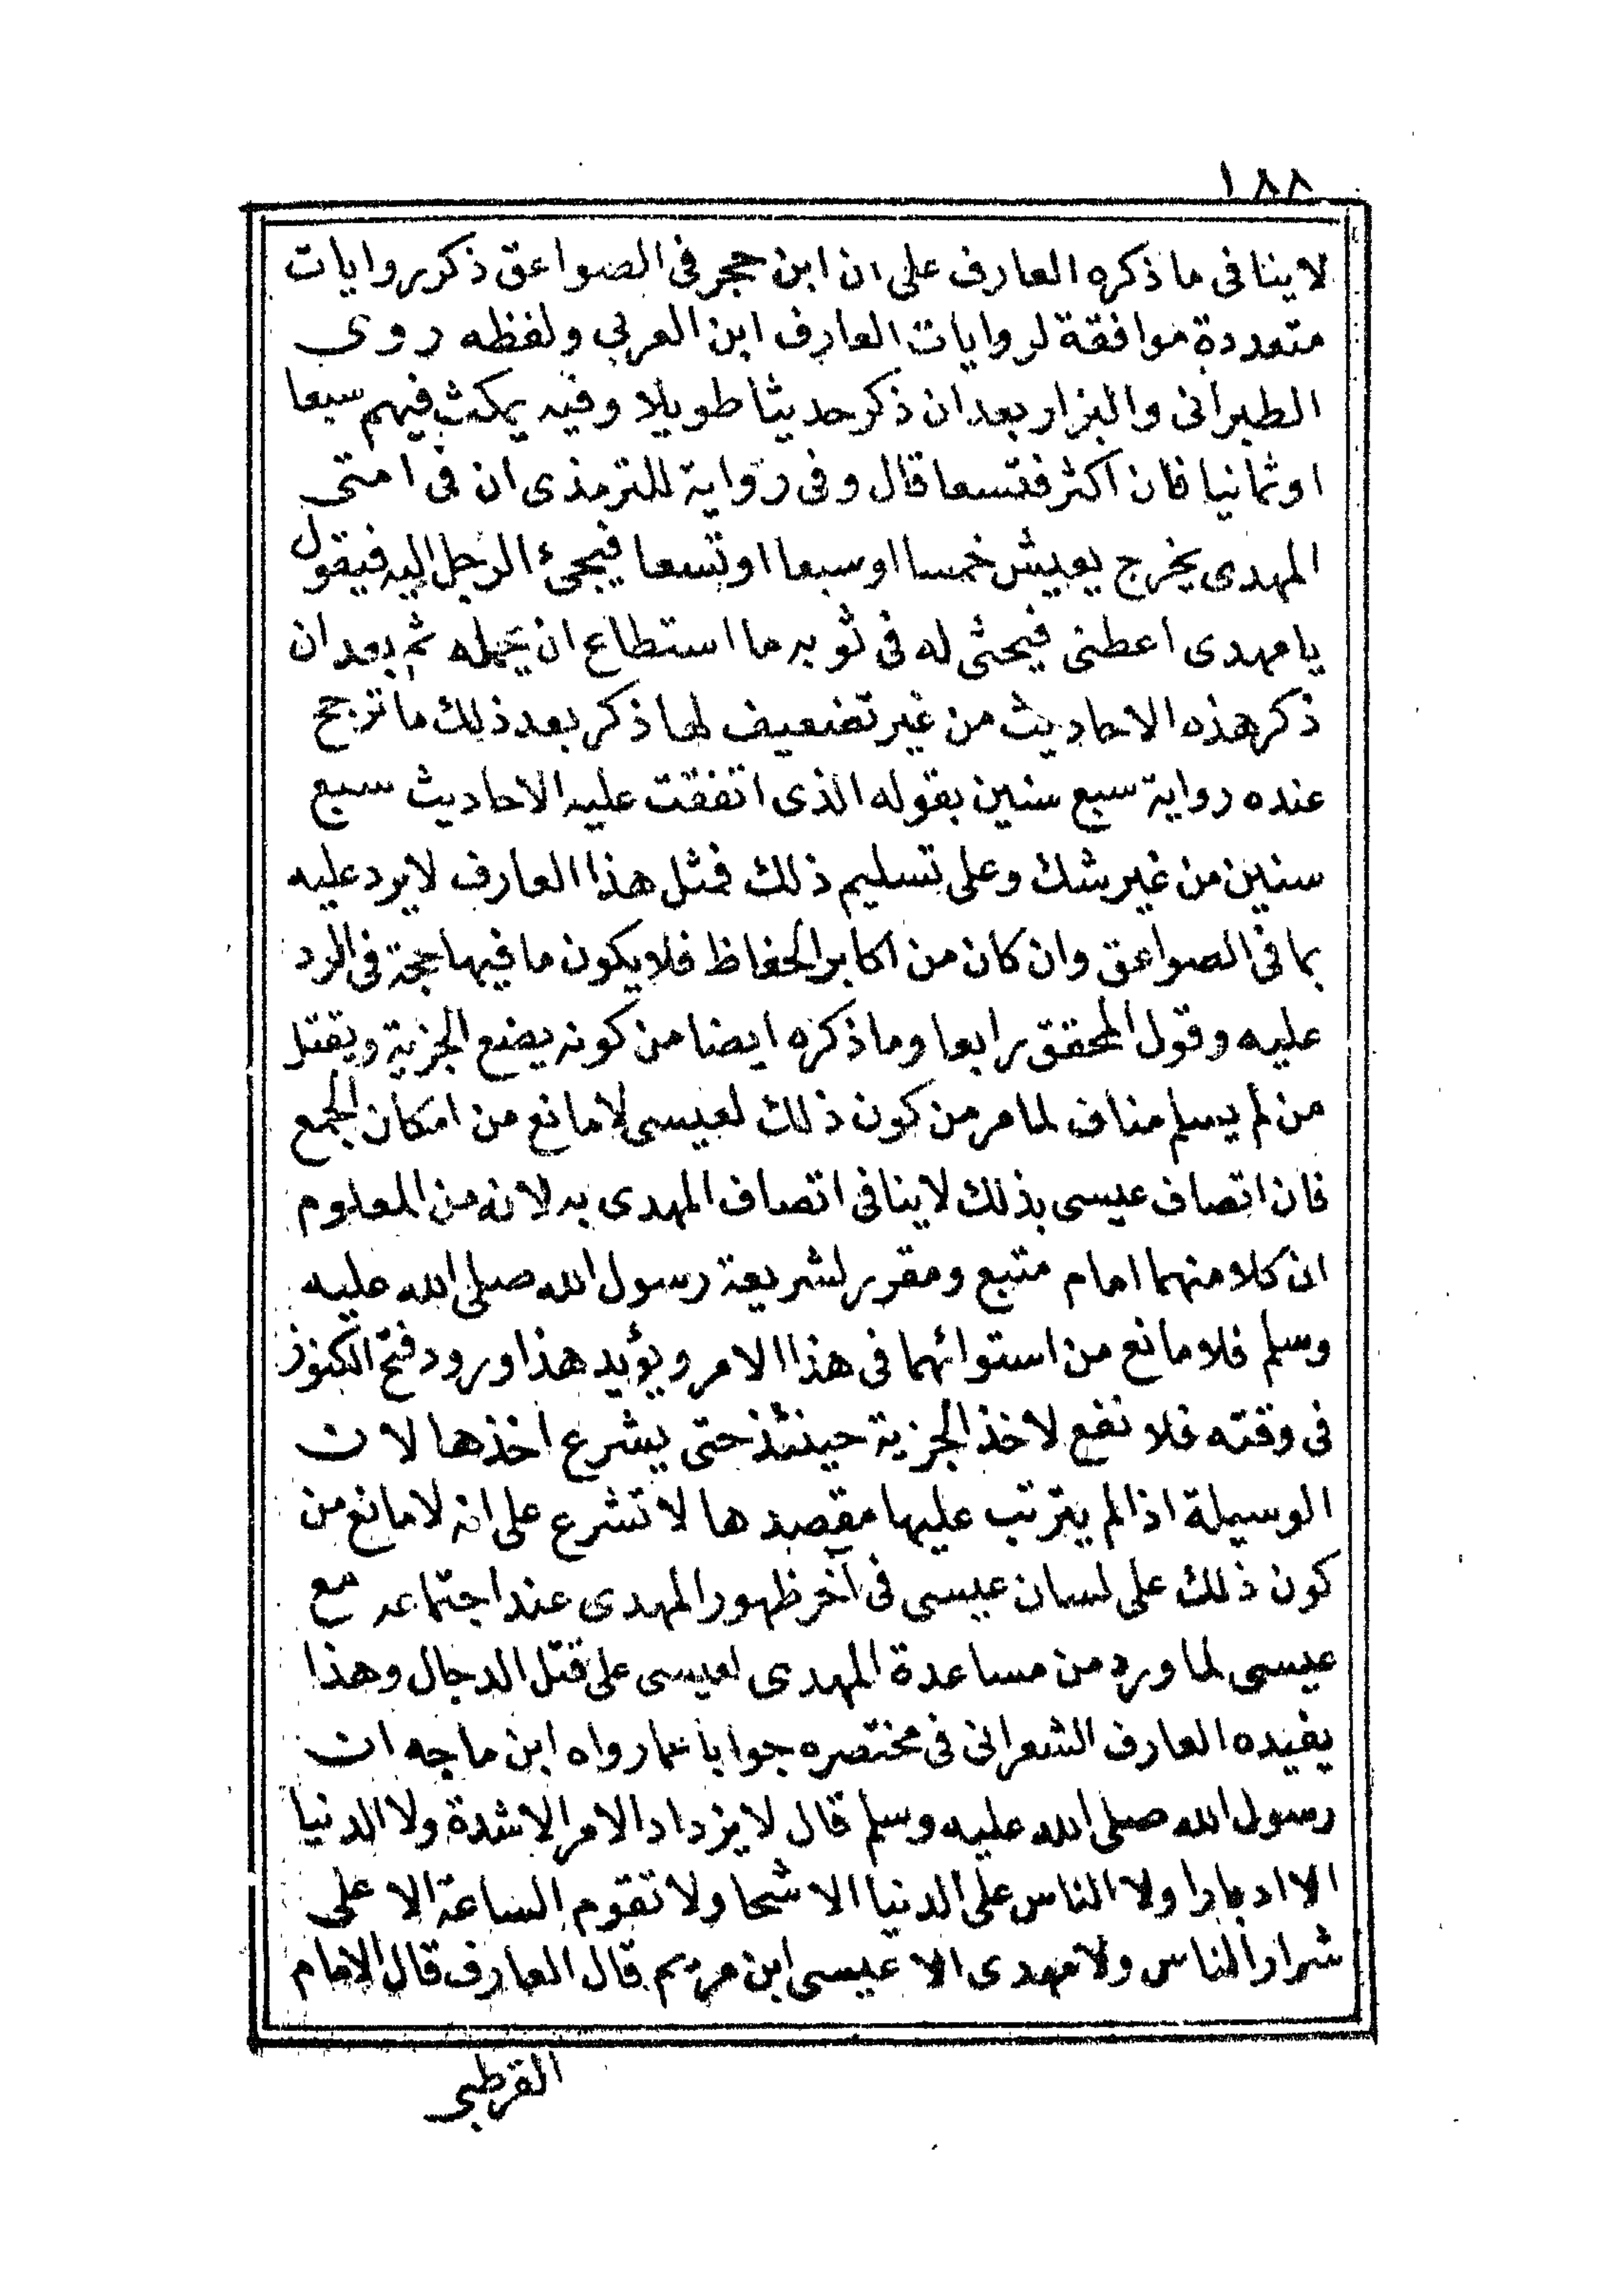 ١٨٨
لاينافى ما ذكره العارف على ان ابن حجر فى الصواعق ذكر روايات
متعددة موافقة لروايات العارف ابن العربي ولفظه روى
الطبرانى والبزار بعد ان ذكر حديثا طويلا وفيه يمكث فيهم سبعا
اوثمانيا فان اكثر فتسعا قال وفى رواية للترمذى ان فى امتى
المهدى يخرج يعيش خمسا اوسبعا اوتسعا فيجئ الرجل اليه فيقول
يا مهدى اعطنى فيحثى له فى ثوبه ما استطاع ان يحمله ثم بعد ان
ذكر هذه الاحاديث من غير تضعيف لها ذكر بعد ذلك ما ترجح
عنده رواية سبع سنين بقوله الذى اتفقت عليه الاحاديث سبع
سنين من غير شك وعلى تسليم ذلك فمثل هذا العارف لايرد عليه
بما فى الصواعق وان كان من اكابر الحفاظ فلا يكون ما فيها حجة فى الرد
عليه وقول المحقق رابعا وما ذكره ايضا من كونه يضع الجزية ويقتل
من لم يسلم مناف لما مر من كون ذلك لعيسى لامانع من امكان الجمع
فان اتصاف عيسى بذلك لاينافى اتصاف المهدى به لانه من المعلوم
ان كلا منهما امام متبع ومقرر لشريعة رسول الله صلى الله عليه
وسلم فلا مانع من استوائهما فى هذا الامر ويؤيد هذا ورود فتح الكنوز
فى وقته فلا نفع لاخذ الجزية حينئذ حتى يشرع اخذها لان
الوسيلة اذا لم يترتب عليها مقصدها لا تشرع على انه لا مانع من
كون ذلك على لسان عيسى فى آخر ظهور المهدى عند اجتماعه مع
عيسى لما ورد من مساعدة المهدى لعيسى على قتل الدجال وهذا
يفيده العارف الشعرانى فى مختصره جوابا عما رواه ابن ماجه ان
رسول الله صلى الله عليه وسلم قال لا يزداد الامر الا شدة ولا الدنيا
الا ادبارا ولا الناس على الدنيا الا شحا ولا تقوم الساعة الا على
شرار الناس ولا مهدى الا عيسى ابن مريم قال العارف قال الامام
القرطبى